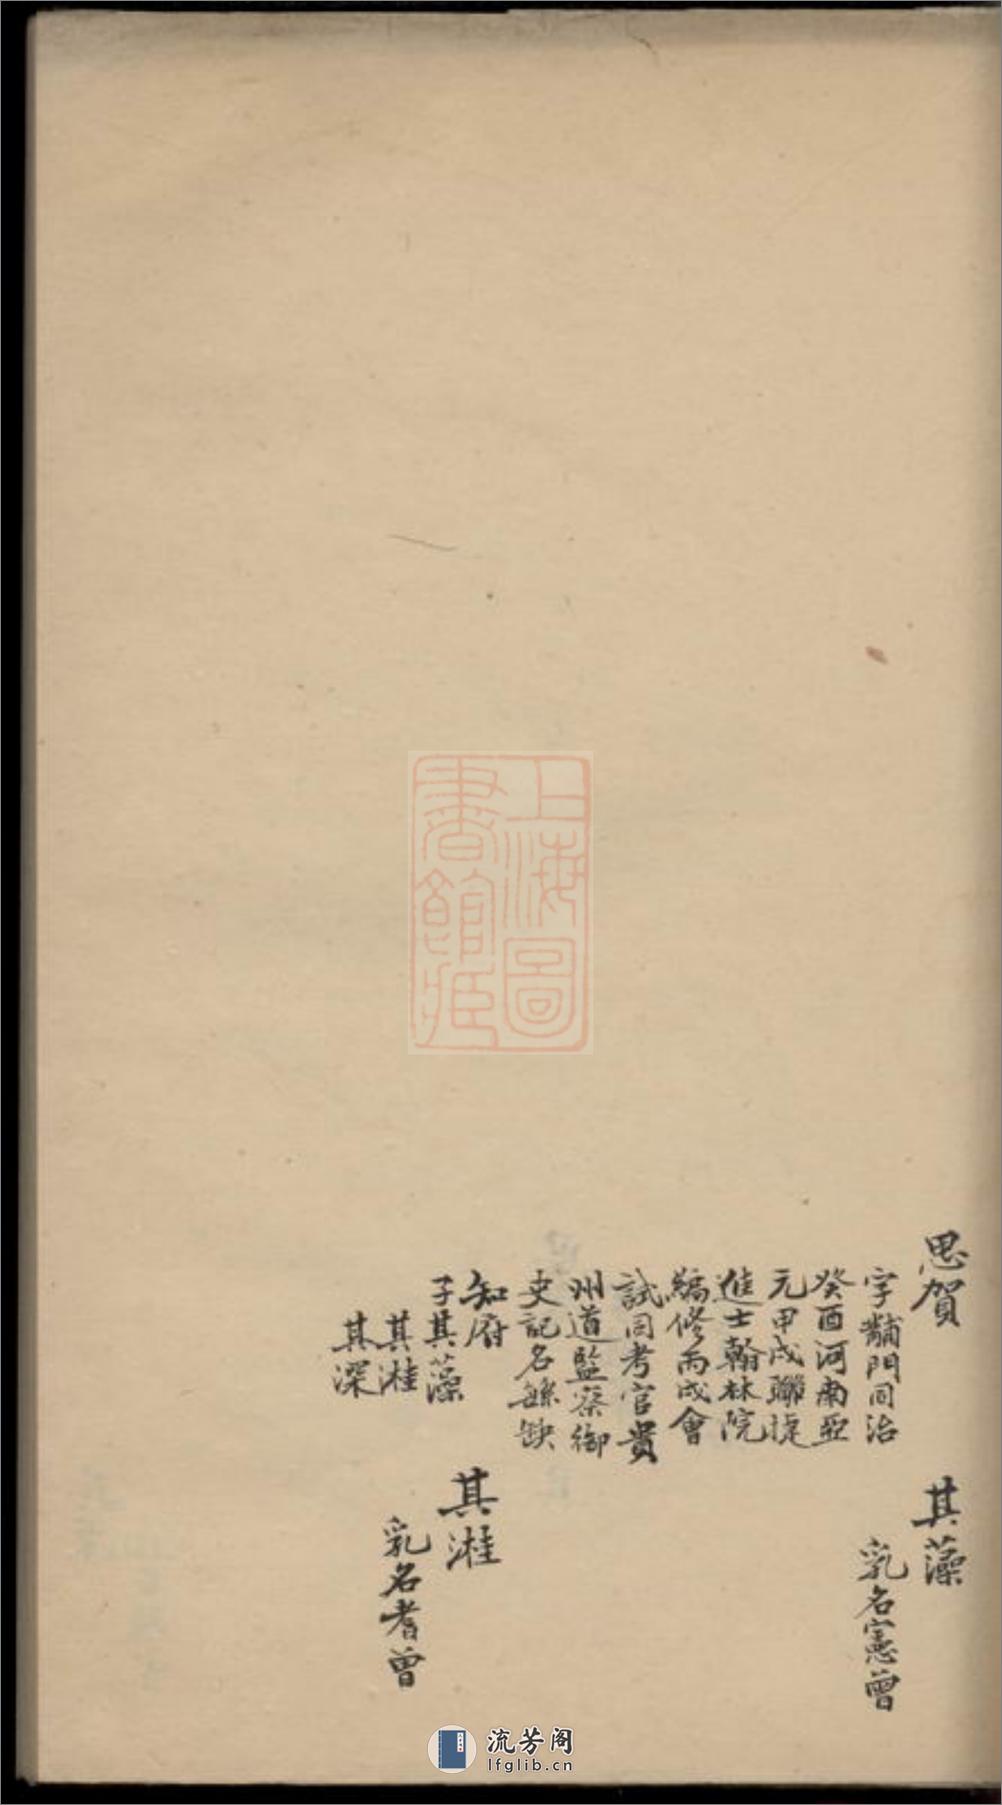 思賀
字黼門同治
癸酉河南亞
元甲戌聯捷
進士翰林院
編修丙戌會
試同考官貴
州道監察御
史記名繁缺
知府
子其藻
其溎
其深
其藻
乳名憲曾
其溎
乳名耆曾
上海圖
書館臧
流芳阁
lfglib.cn